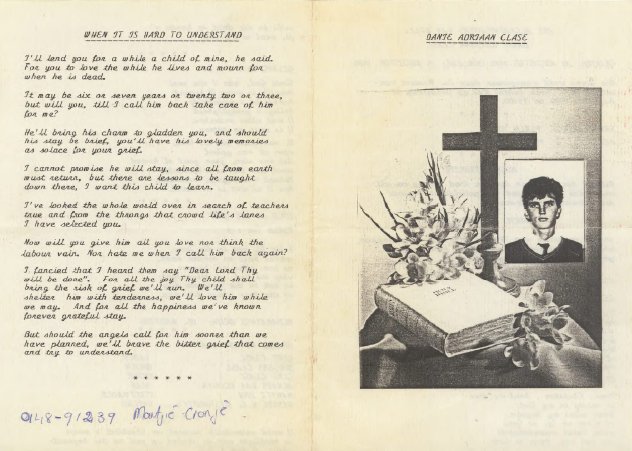 WHEN IT IS HARD TO UNDERSTAND
I'll lend you for a while a child of mine, he said.
For you to love the while he lives and mourn for
when he is dead.
It may be six or seven years or twenty two or three,
but will you, till I call him back take care of him
for me?
He'll bring his charm to gladden you, and should
his stay be brief, you'll have his lovely memories
as solace for your grief.
I cannot promise he will stay, since all from earth
must return, but there are lessons to be taught
down there, I want this child to learn.
I've looked the whole world over in search of teachers
true and from the throngs that crowd life's lanes
I have selected you.
Now will you give him all you love nor think the
labour vain. Nor hate me when I call him back again?
I fancied that I heard them say "Dear Lord Thy
will be done". For all the joy Thy child shall
bring the risk of grief we'll run. We'll
shelter him with tenderness, we'll love him while
we may. And for all the happiness we've known
forever grateful stay.
But should the angels call for him sooner than we
have planned, we'll brave the bitter grief that comes
and try to understand.
* * * * * *
0148-91239 Montjié Cronjé
DANIE ADRIAAN CLASE
HOLY
BIBLE